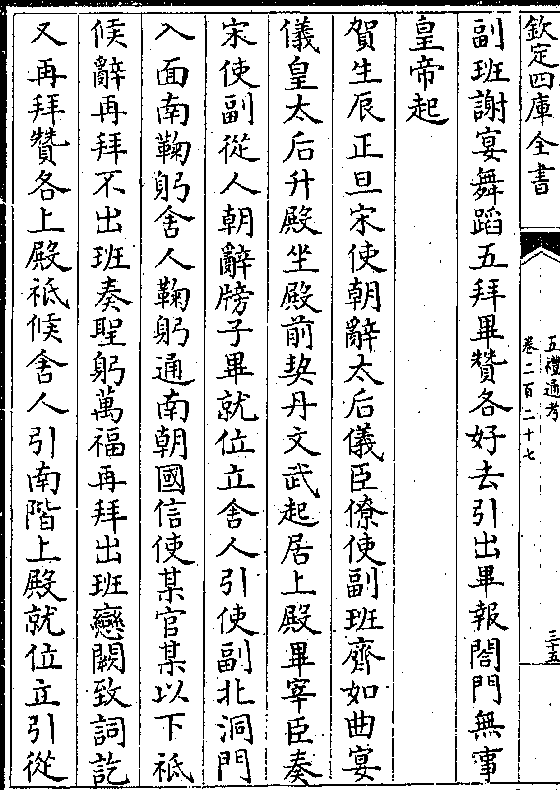 欽定四庫全書
五禮通考
卷二百二十七
三十五
副班謝宴舞蹈五拜畢贊各好去引出畢報閤門無事
皇帝起
賀生辰正旦宋使朝辭太后儀臣僚使副班齊如曲宴
儀皇太后升殿坐殿前契丹文武起居上殿畢宰臣奏
宋使副從人朝辭牓子畢就位立舍人引使副北洞門
入面南鞠躬舍人鞠躬通南朝國信使某官某以下祗
候辭再拜不出班奏聖躬萬福再拜出班戀闕致詞訖
又再拜贊各上殿祗候舍人引南階上殿就位立引從